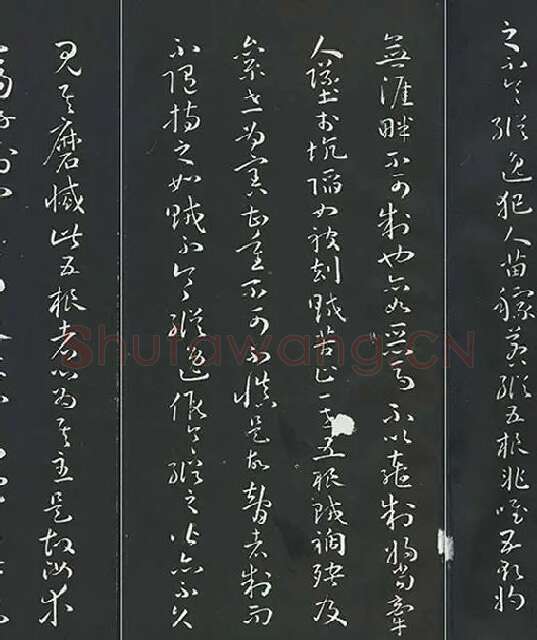 之不令縱逸犯人苗稼若縱五根非唯五欲將
無涯畔不可制也亦如惡馬不以轡制將當牽
人墜於坑陷如被劫賊苦止一世五根賊禍殃及
累世為害甚重不可不慎是故智者制而
不隨持之如賊不令縱逸假令縱之皆亦不久
見其磨滅此五根者心為其主是故汝等
Shufawang.CN